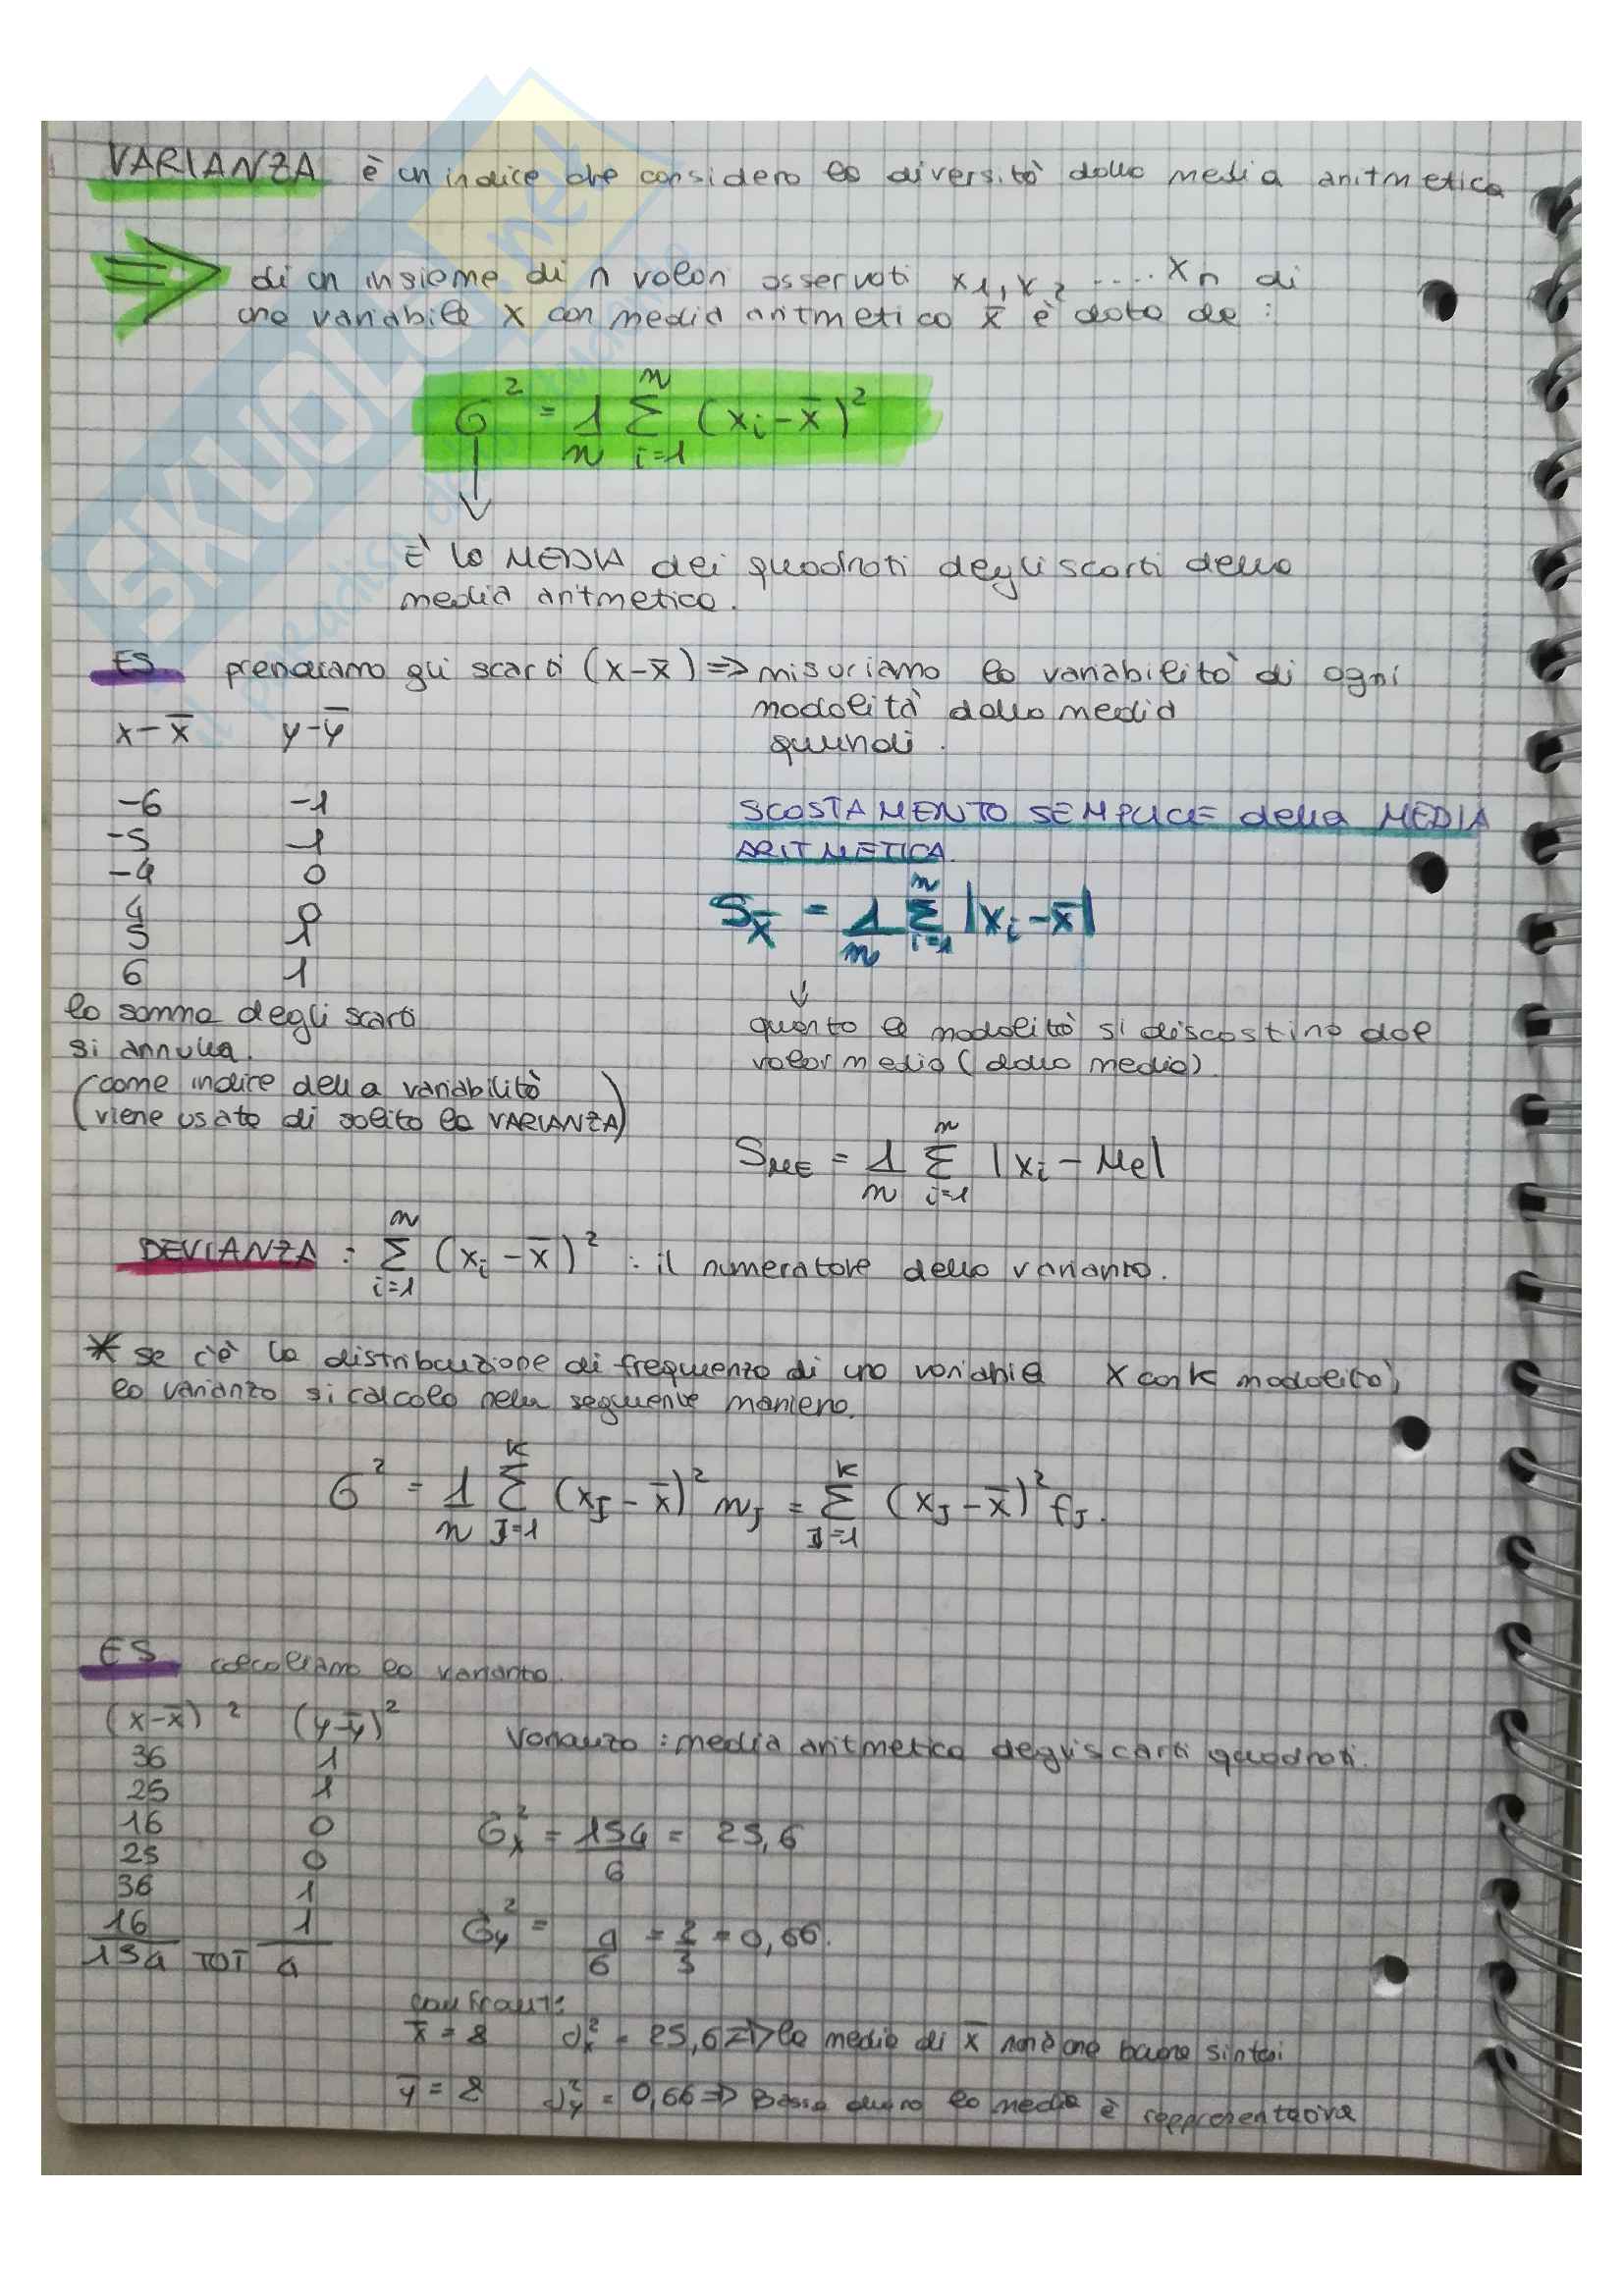 VARIANZA è un indice che considera la diversità dalla media aritmetica
di un insieme di n valori osservati x1, x2 .... xn di
una variabile X con media aritmetica x̄ è data da :
σ² = 1/n Σ i=1 n (xi - x̄)²
È la MEDIA dei quadrati degli scarti della
media aritmetica.
ES prendiamo gli scarti (x-x̄) => misuriamo la variabilità di ogni
modalità dalla media
quindi.
x-x̄ y-ȳ
-6 -1
-5 1
-4 0
4 0
5 1
6 1
SCOSTAMENTO SEMPLICE della MEDIA
ARITMETICA
Sx̄ = 1/n Σ i=1 n |xi - x̄|
la somma degli scarti
si annulla.
(come indice della variabilità
viene usato di solito la VARIANZA)
quanto le modalità si discostino dal
valor medio (dalla media).
SME = 1/n Σ i=1 n |xi - Me|
DEVIANZA : Σ i=1 n (xi - x̄)² : il numeratore della varianza.
* se c'è la distribuzione di frequenza di una variabile X con K modalità,
la varianza si calcola nella seguente maniera.
σ² = 1/n Σ J=1 K (xJ - x̄)² nJ = Σ J=1 K (xJ - x̄)² fJ.
ES calcoliamo la varianza.
(x-x̄)² (y-ȳ)²
36 1
25 1
16 0
25 0
36 1
16 1
154 TOT 4
Varianza : media aritmetica degli scarti quadrati.
σx² = 154/6 = 25,6
σy² = 4/6 = 2/3 = 0,66.
confronti:
x̄ = 8 σx² = 25,6 => la media di x̄ non è una buona sintesi
ȳ = 8 σy² = 0,66 => Bassa la media è rappresentativa
SKUOLA.net
il paradiso dello studente